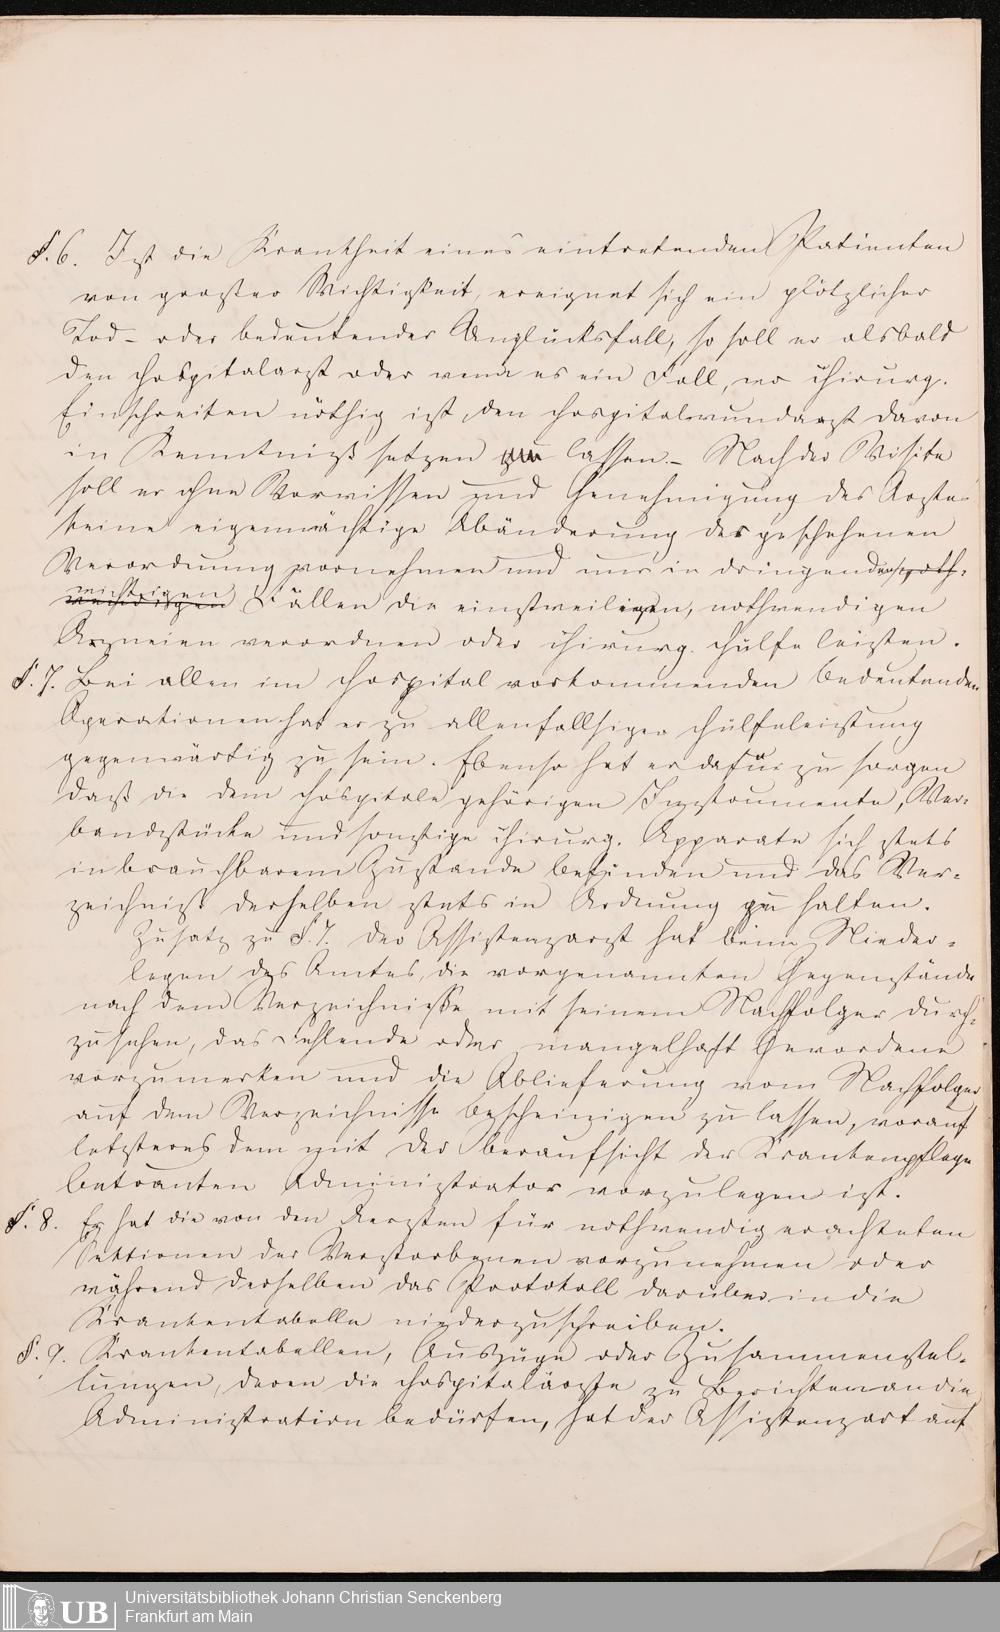 §. 6. Ist die Krankheit eines eintretenden Patienten
von großer Wichtigkeit, ereignet sich ein plötzlicher
Tod- oder bedeutender Unglücksfall, so soll er alsbald
den Hospitalarzt oder wenn es ein Fall, wo chirurg.
Einschreiten nöthig ist, den Hospitalwundarzt davon
in Kenntniß setzen zu lassen. – Nach der Visite
soll er ohne Vorwissen und Genehmigung des Arztes
keine eigenmächtige Abänderung der geschehenen
Verordnung vornehmen und nur in dringenden
wichtigen Fällen die einstweiligen, nothwendigen
Arzneien verordnen oder chirurg. Hülfe leisten.
§. 7. Bei allen im Hospital vorkommenden bedeutenden
Operationen hat er zu allenfallsiger Hülfeleistung
gegenwärtig zu sein. Ebenso hat er dafür zu sorgen
daß die dem Hospitale gehörigen Instrumente, Ver-
bandstücke und sonstige chirurg. Apparate sich stets
in brauchbarem Zustande befinden und das Ver-
zeichniß derselben stets in Ordnung zu halten.
Zusatz zu §. 7. Der Assistenzarzt hat beim Nieder-
legen des Amtes, die vorgenannten Gegenstände
nach dem Verzeichnisse mit seinem Nachfolger durch-
zusehen, das Fehlende oder mangelhaft Gewordene
vorzumerken und die Ablieferung vom Nachfolger
auf dem Verzeichnisse bescheinigen zu lassen, worauf
letzteres dem mit der Oberaufsicht der Krankenpflege
betrauten Administrator vorzulegen ist.
§. 8. Er hat die von den Aerzten für nothwendig erachteten
Sektionen der Verstorbenen vorzunehmen oder
während derselben das Protokoll darüber in die
Krankentabelle niederzuschreiben.
§. 9. Krankentabellen, Auszüge oder Zusammenstel-
lungen, deren die Hospitalärzte zu Berichten an die
Administration bedürfen, hat der Assistenzarzt auf
Universitätsbibliothek Johann Christian Senckenberg
Frankfurt am Main
UB